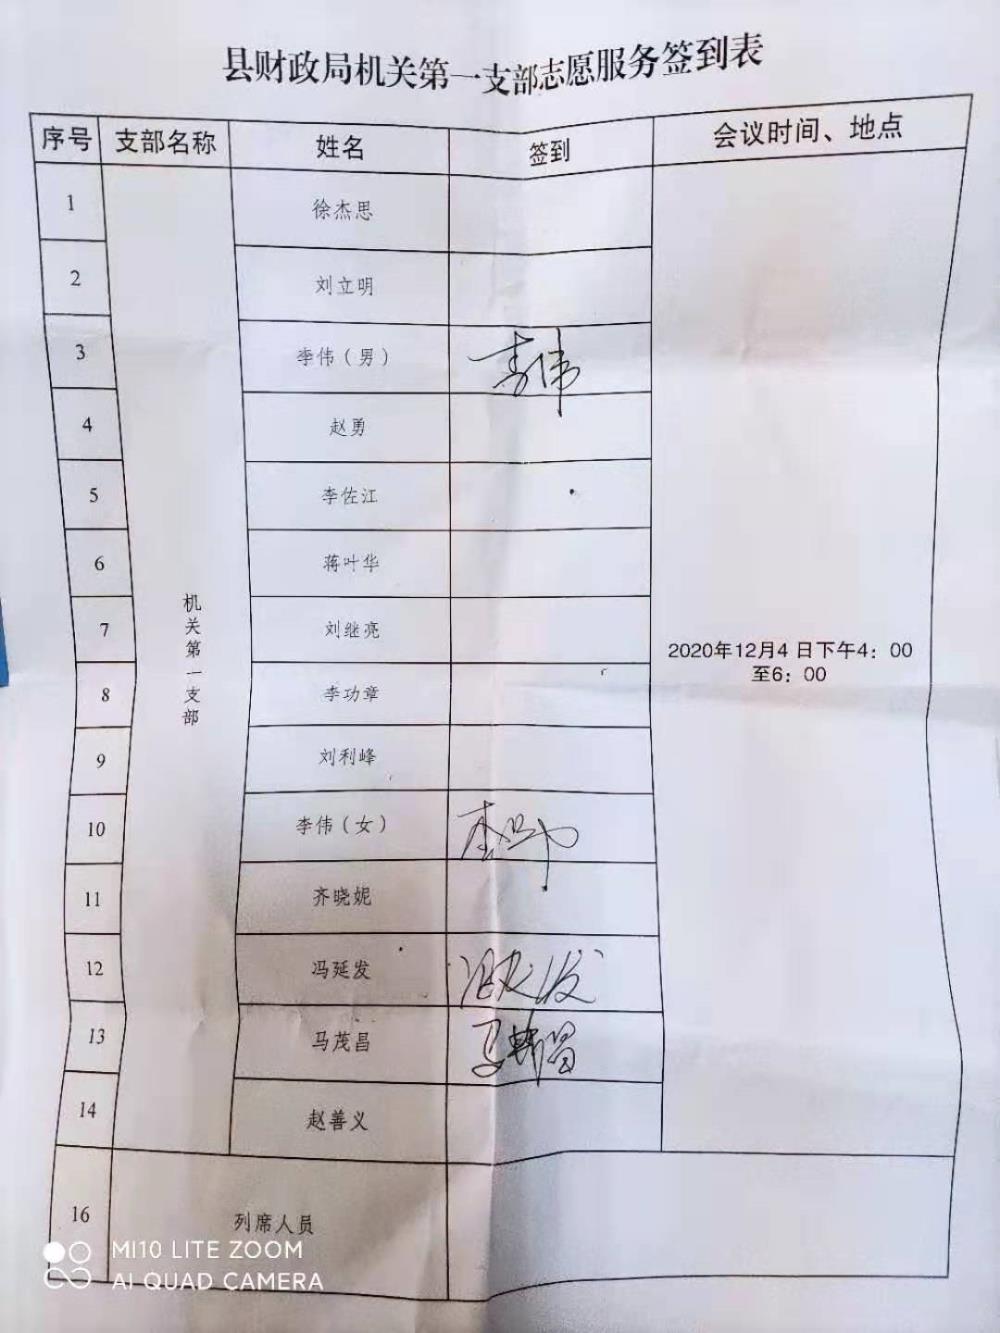 县财政局机关第一支部志愿服务签到表
序号 支部名称 姓名 签到 会议时间、地点
1 徐杰思
2 刘立明
3 李伟（男） 李伟
4 赵勇
5 李佐江
6 蒋叶华
7 刘继亮
8 李功章
9 刘利峰
10 李伟（女） 李伟
11 齐晓妮
12 冯延发 冯延发
13 马茂昌 马茂昌
14 赵善义
机关第一支部
2020年12月4日下午4：00
至6：00
16 列席人员
MI10 LITE ZOOM
AI QUAD CAMERA